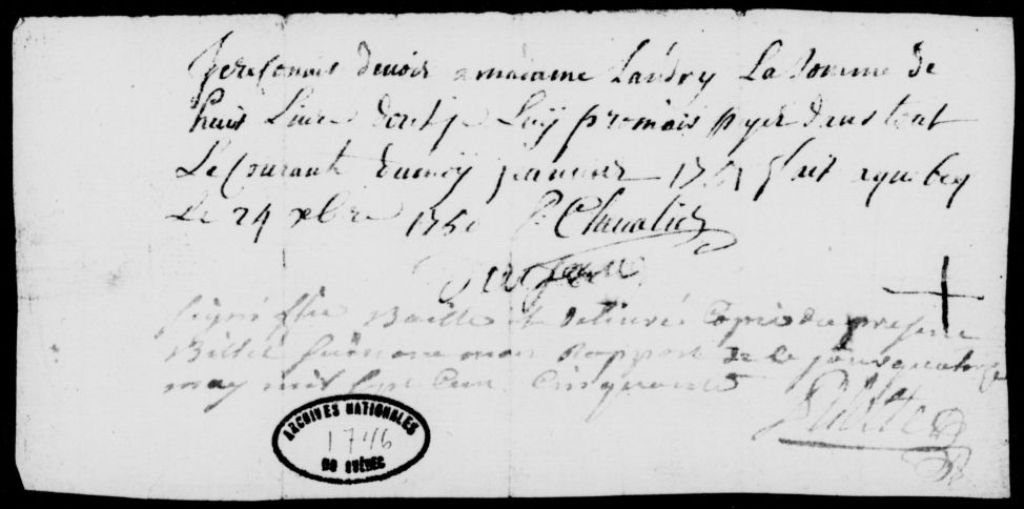 Jereconnois devoir a madame Landry La Somme de
huit Livre dont je Luy promais pyer dans tout
Le Courant dumoy janvier 1751 fait a quebeq
Le 24 xbre 1750 P: Chevalier
Signiffié Baillé et délivré Copie du present
Billet Suivant mon Rapport de ce jour quatorze
may mil Sept Cent Cinquante
ARCHIVES NATIONALES
1746
DU QUÉBEC